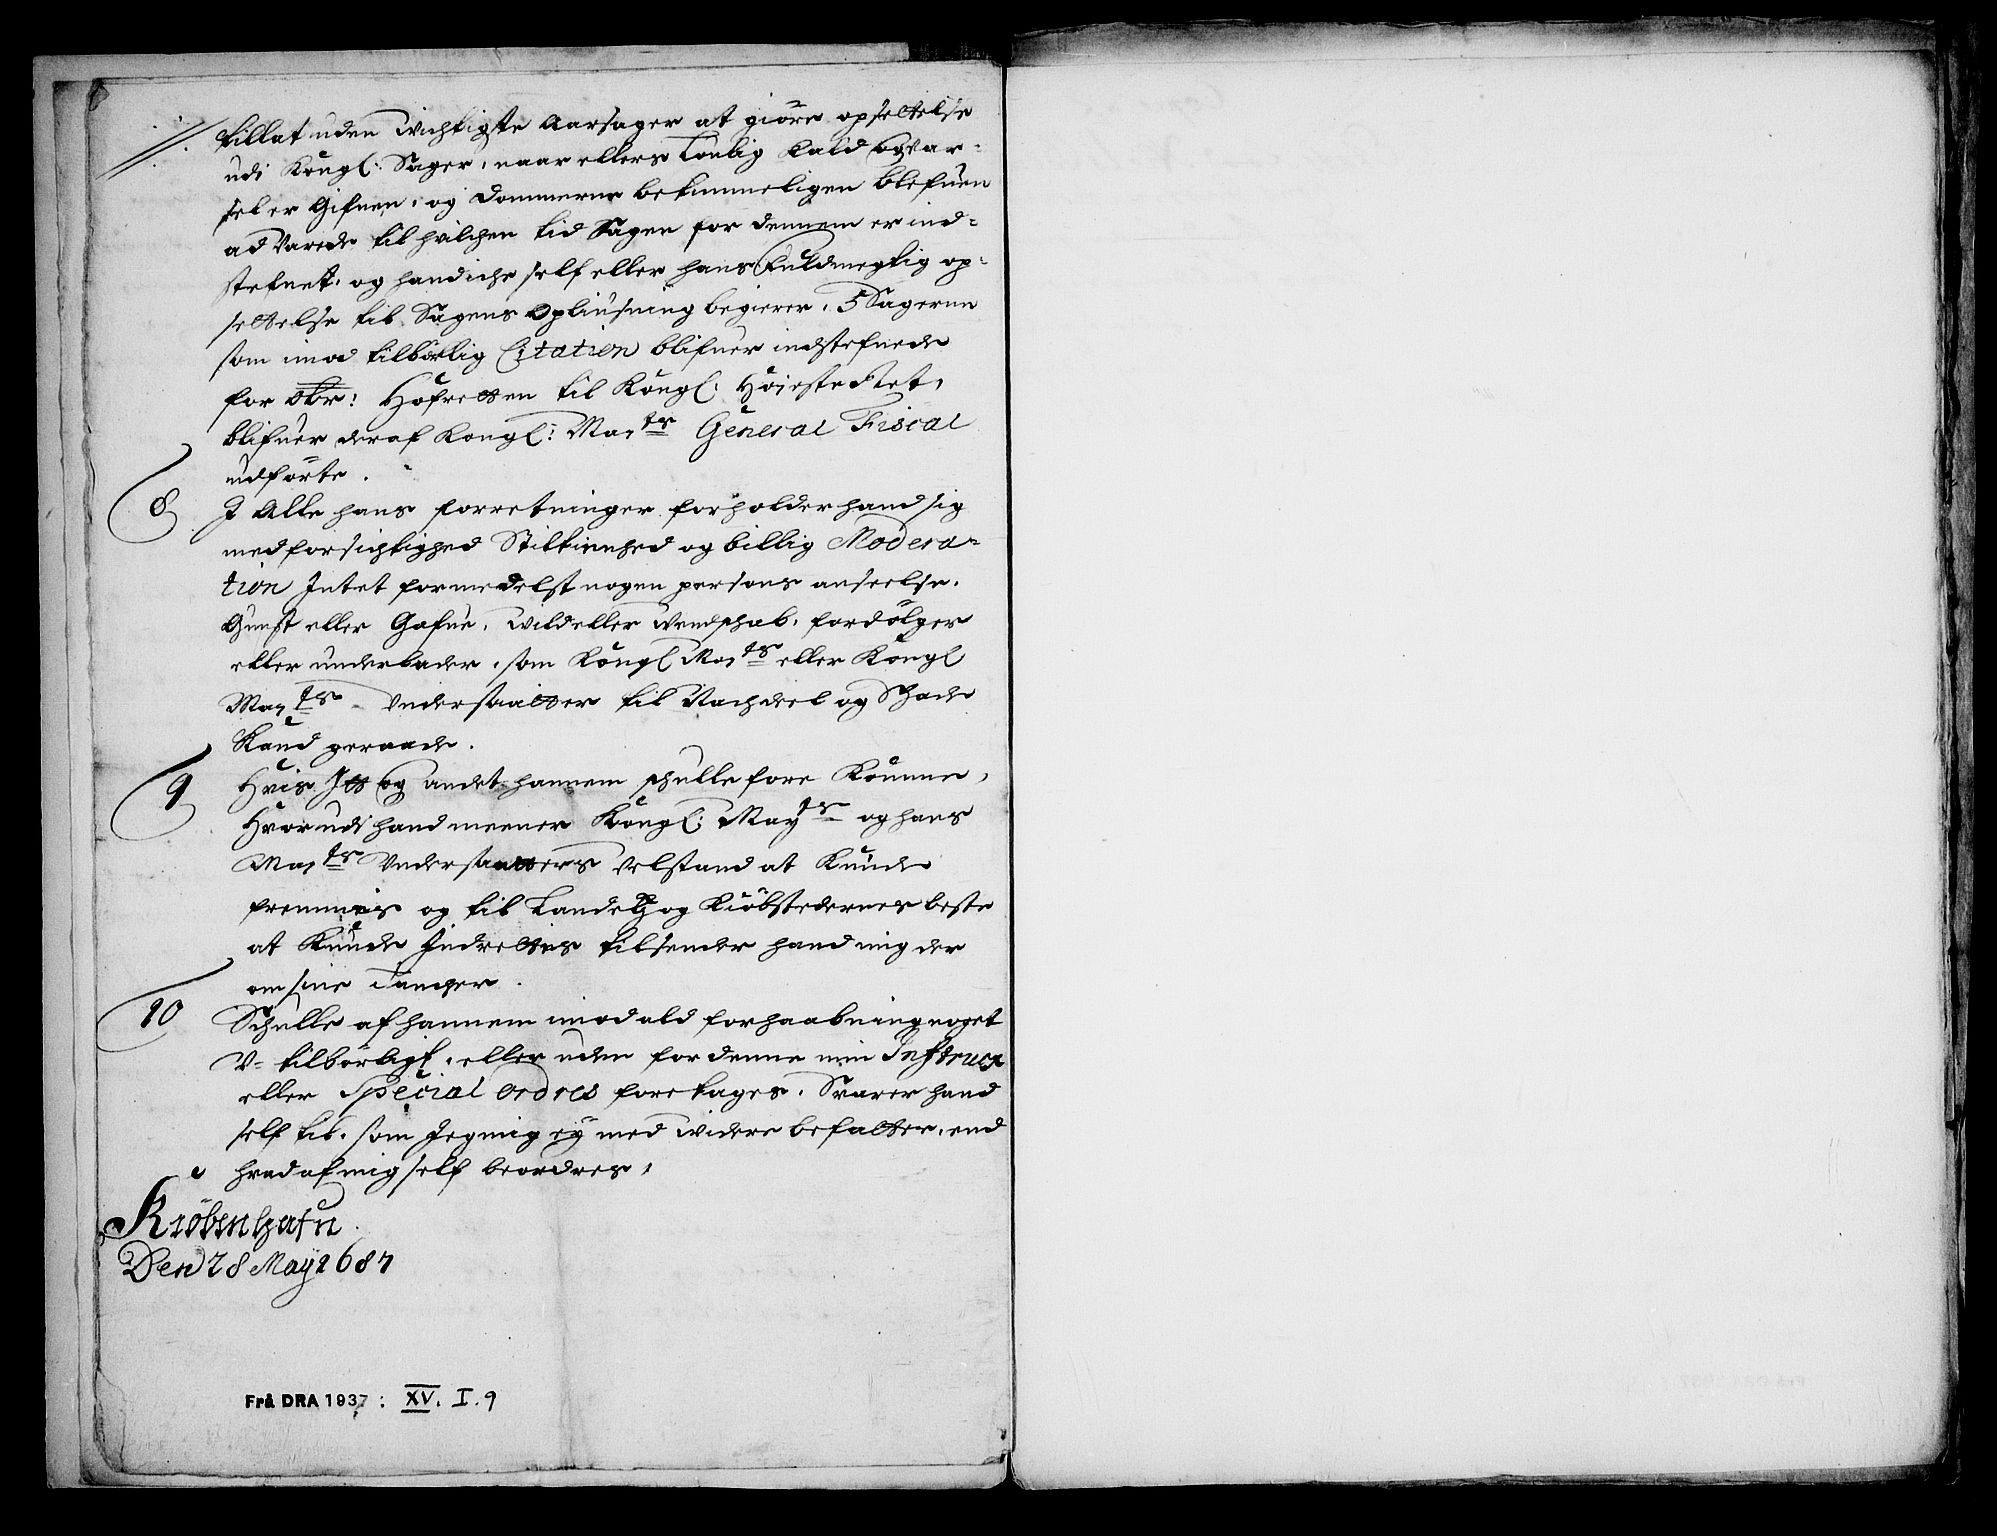 tillat uden Wichtigste Aarsager at giöre opsettelse
udi Kongl: Sager, naar ellers Loulig Kald og Var-
sel er Gifuen, og Dommerne bekummeligen blefuen
ad Varede til hvilchen tid Sagen for dennem er ind-
stefnet, og hand iche self eller hans fuldmegtig op-
settelse til Sagens Opliusning begierer, Sagerne
som imod tilbörlig Citation blifuer indstefnede
for Ofr: Hofretten til Kongl: Höieste Ret,
blifuer deraf Kongl: Mayts General Fiscal
udförte.
8 I Alle hans forretninger forholder hand sig
med forsichtighed Stiltienhed og billig Modera-
tion Intet formedelst nogen persons anseelse,
Gunst eller Gafue, Wild eller Wendschab, fordölger
eller underlader, som Kongl Mayts eller Kongl
Mayts Undersaatter til Nachdeel og Schade
Kand geraade.
9 Hvis Et og andet hannem schulle fore Komme,
Hvorudi hand meener Kongl: Mayts og hans
Mayts Undersaatters Velstand at Kunde
fremmis og til Landets og Kiöbstedernes beste
at Kunde Indrettis tilsender hand mig der
om sine Tancher.
10 Schulle af hannem imod ald forhaabning noget
V-tilbörligt, eller uden for denne min Instrux
eller Special Ordres foretages, Svarer hand
self til, som Jeg mig ey med widere befatter, end
hvad af mig self beordres,
Kiöbenhafn
Den 28 May 1687
Frå DRA 1937: XV. I. 9